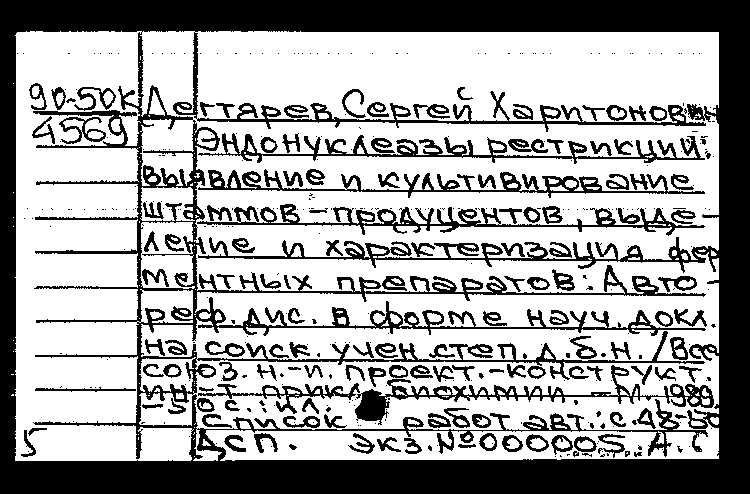 90-50К Дегтярев, Сергей Харитонович
4569 Эндонуклеазы рестрикции:
выявление и культивирование
штаммов-продуцентов, выде-
ление и характеризация фер
ментных препаратов: Авто-
реф. дис. в форме науч. докл.
на соиск. учен. степ. д.б.н. /Всес
союз. н.-и. проект.-конструкт.
ин-т прикл. биохимии. - М., 1989.
-50 с.: ил.
Список работ авт.: с. 48-50
5 ДСП. экз. №000005. А. С